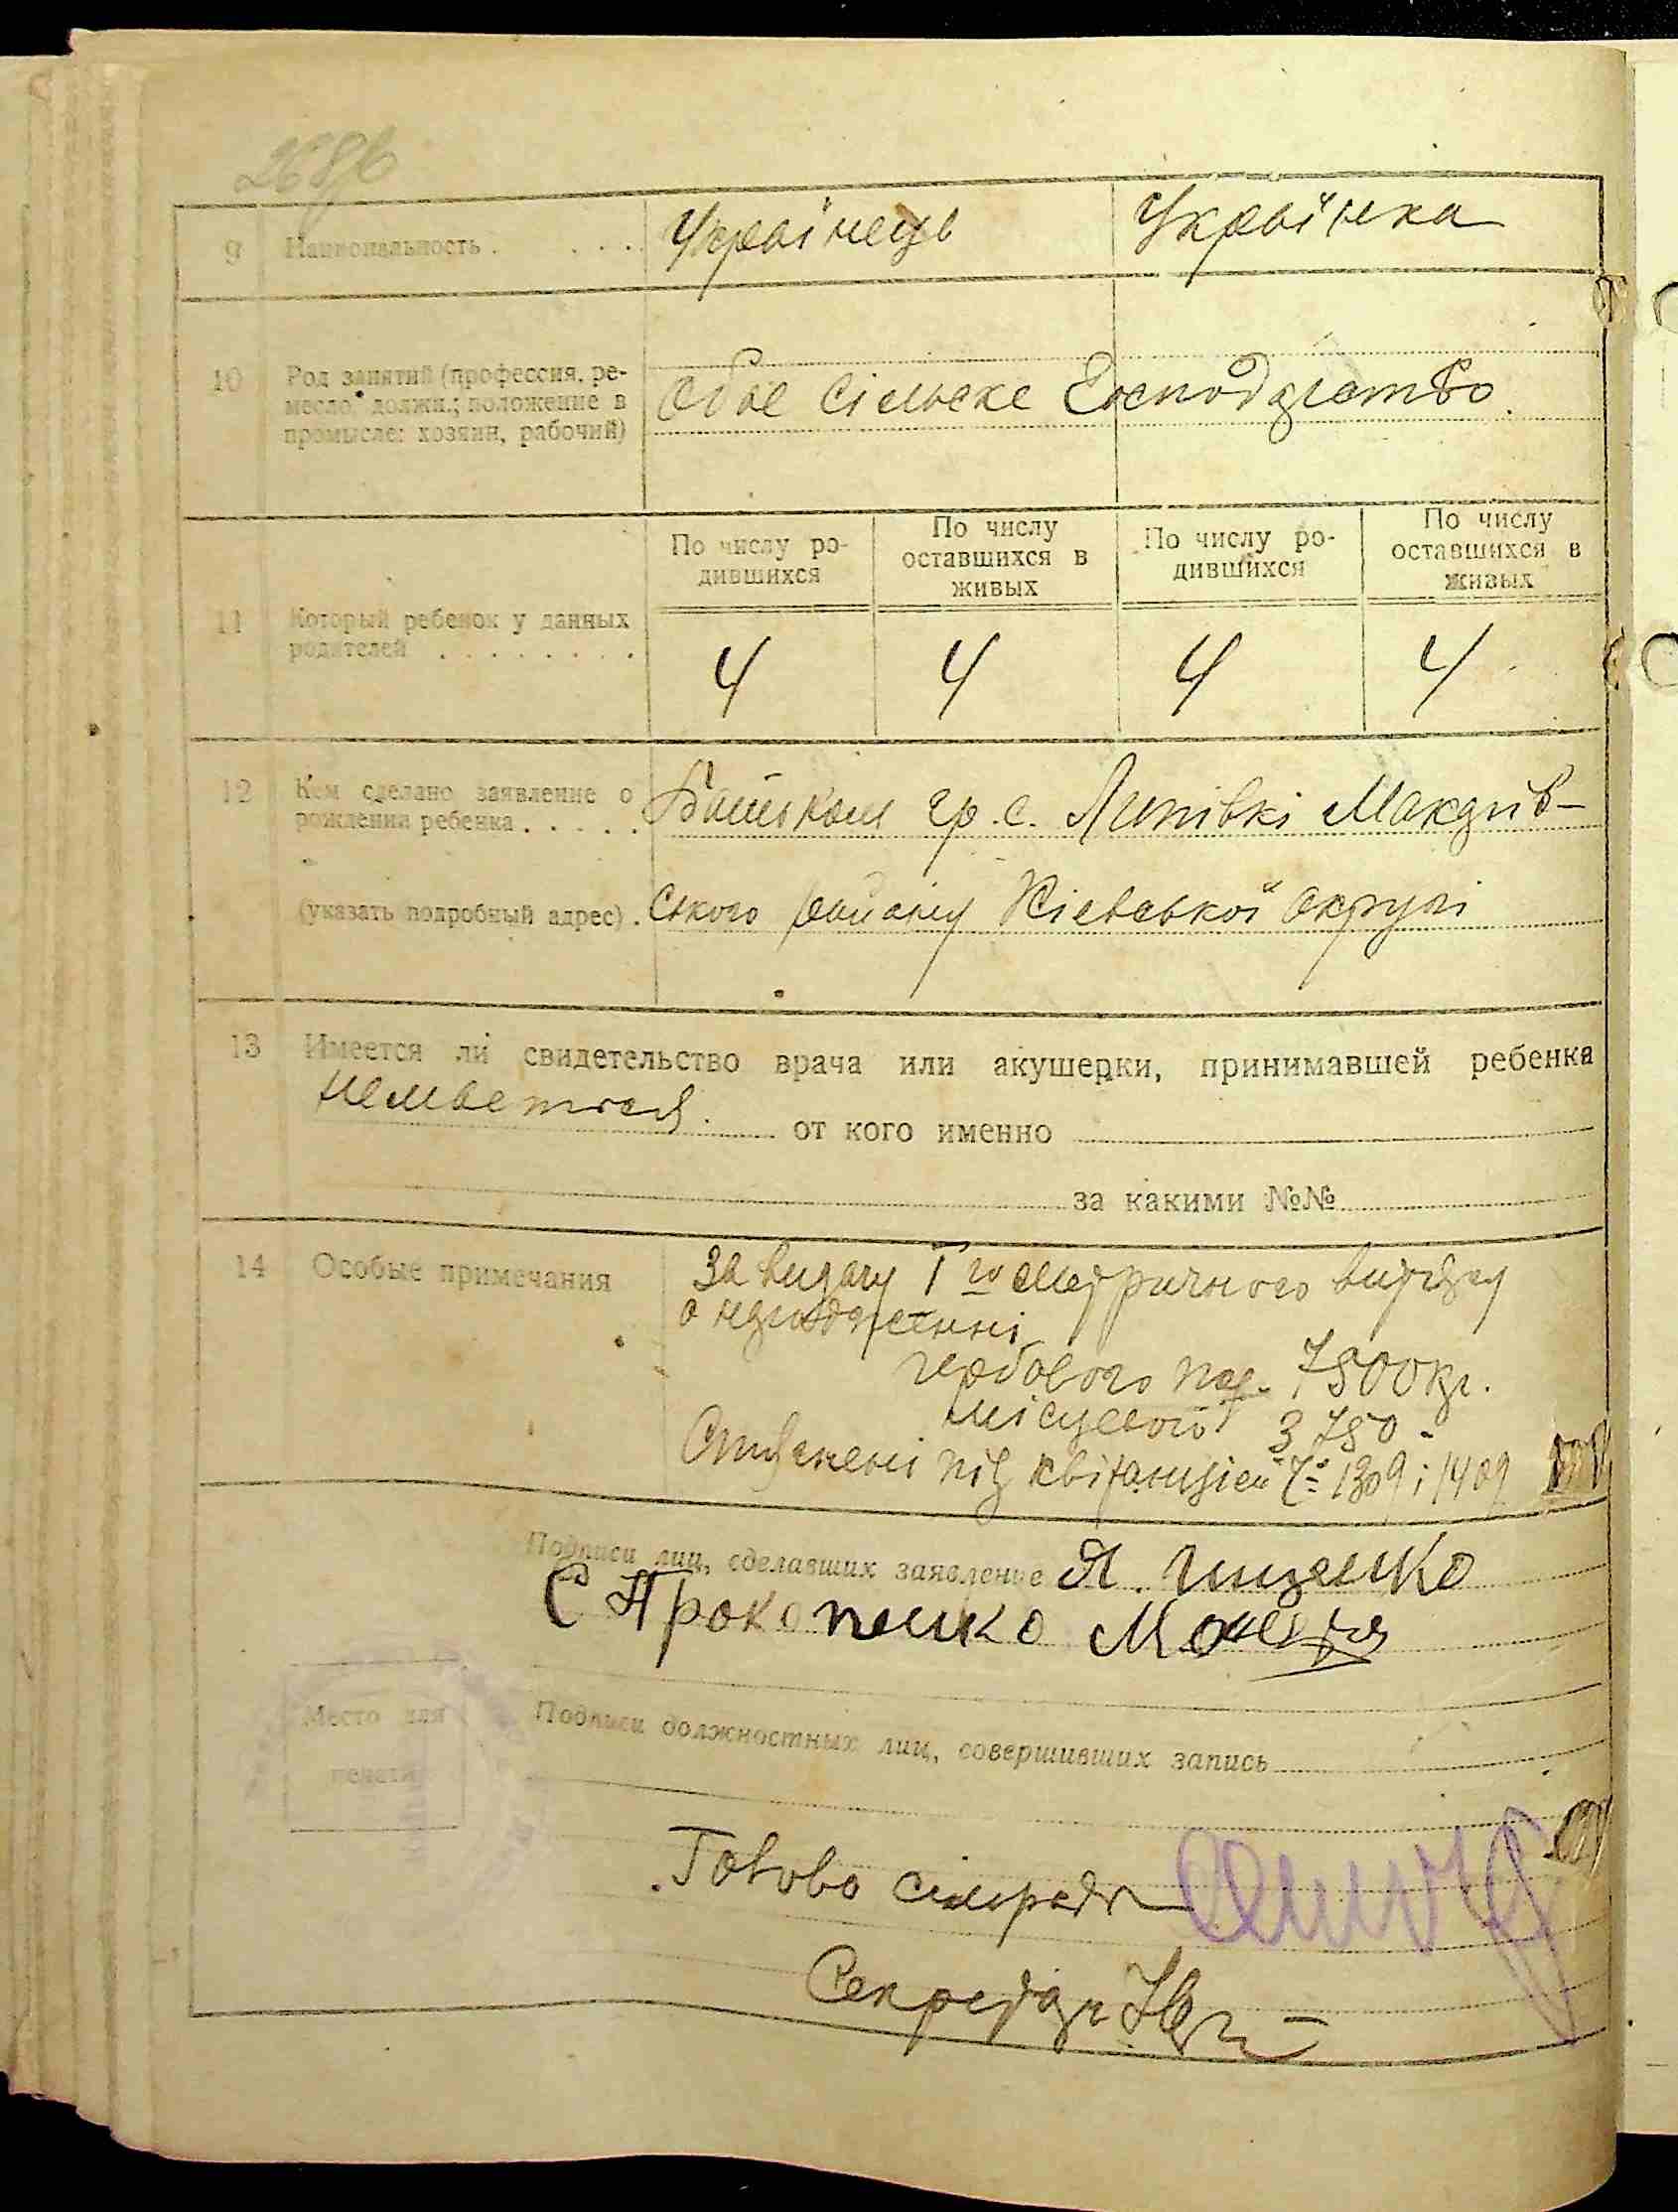 268б
9 Национальность . . . . Українець Українка
10 Род занятий (профессия, ре-
месло, должн.; положение в
промысле: хозяин, рабочий)
Обое сільске Господарство.
По числу ро-
дившихся
По числу
оставшихся в
живых
По числу ро-
дившихся
По числу
оставшихся в
живых
11 Который ребенок у данных
родителей . . . . . . . .
4 4 4 4
12 Кем сделано заявление о
рождении ребенка . . . . .
Батьком гр. с. Липівкі Макарів-
(указать подробный адрес) . ського району Кієвської округі
13 Имеется ли свидетельство врача или акушерки, принимавшей ребенка
от кого именно
за какими №№
14 Особые примечания
За видачу 1го метричного витягу
о народженні
гербового 7500 кр.
місцевого 3750 -
під квітанцією 1309 і 1409
Подписи лиц, сделавших заявление Я.
С Прокопенко
Место для
печати
Подписи должностных лиц, совершивших запись
Голова сільради
Секретар